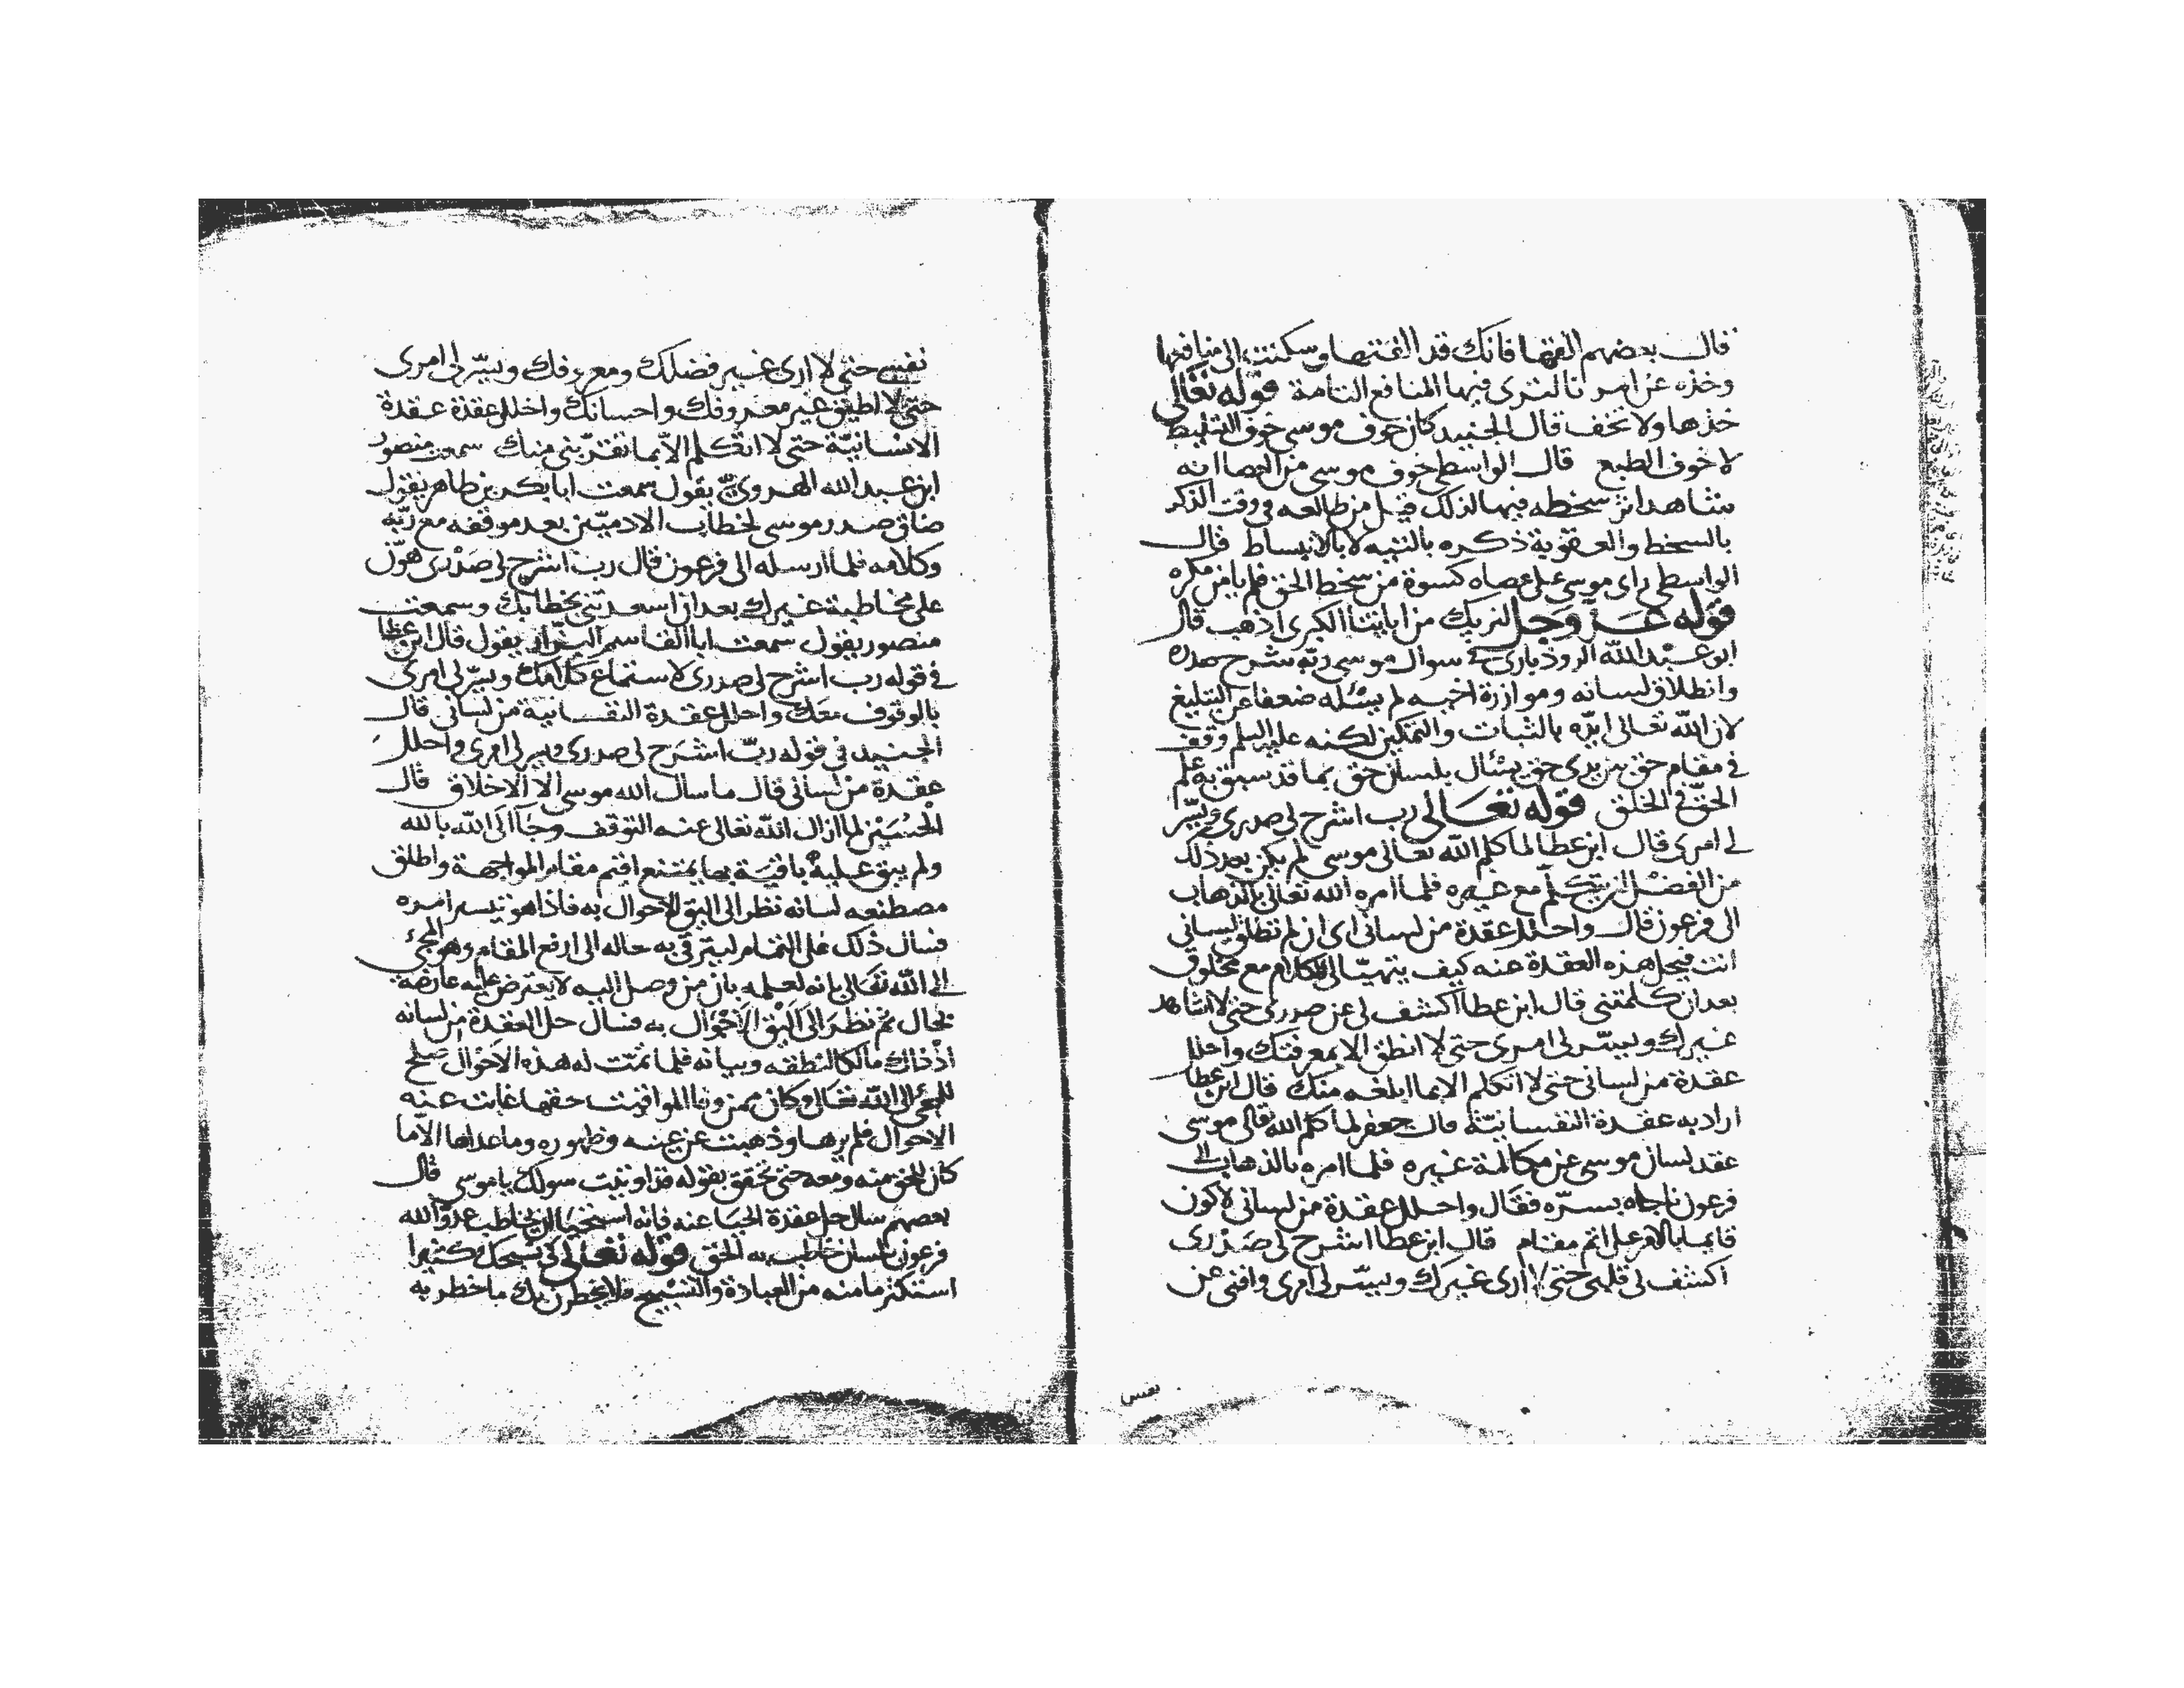 قال بعضهم القها فانك قد الفتها وسكنت الى منافعها
وخذه عن امرنا لترى فيها المنافع التامة قوله تعالى
خذها ولا تخف قال الجنيد كان خوف موسى خوف التسليط
لا خوف الطبع قال الواسطى خوف موسى من العصا انه
شاهد اثر سخطه فيها لذلك قيل من طالعه في وقت الذكر
بالسخط والعقوبة ذكره بالتنبيه لا بالانبساط قال
الواسطى راى موسى على عصاه كسوة من سخط الحق فلم يامن مكره
قوله عز وجل لنريك من اياتنا الكبرى اذهب قال
ابو عبد الله الروذبارى في سوال موسى ربه شرح صدره
وانطلاق لسانه وموازرة اخيه لم يسئله ضعفا عن التبليغ
لان الله تعالى ايّده بالثبات والتمكين لكنه عليه السلم وقف
في مقام حق بين يدى حق يسئال بلسان حق بما قد سبق به علم
الحق في الخلق قوله تعالى رب اشرح لى صدرى ويسّر
لى امرى قال ابن عطا لما كلم الله تعالى موسى لم يكن بعد ذلك
من الفضل ان يتكلم مع غيره فلما امره الله تعالى بالذهاب
الى فرعون قال واحلل عقدة من لسانى اى ان لم تطلق لسانى
انت فيحل هذه العقدة عنه كيف يتهيّا لى الكلام مع مخلوق
بعد ان كلمتنى قال ابن عطا اكشف لى عن صدرى حتى لا اشاهد
غيرك ويسّر لى امرى حتى لا انطق الا بمعرفتك واحلل
عقدة من لسانى حتى لا اتكلم الا بما ابلغه منك قال ابن عطا
اراد به عقدة النفسانيّة قال جعفر لما كلم الله تعالى موسى
عقد لسان موسى عن مكالمة غيره فلما امره بالذهاب الى
فرعون ناجاه بسرّه فقال واحلل عقدة من لسانى لاكون
قايما بالامر على اتم مقام قال ابن عطا اشرح لى صدرى
اكشف لى قلبى حتى لا ارى غيرك ويسّر لى امرى وافنى عن
نفسى حتى لا ارى غير فضلك ومعروفك ويسّر لى امرى
حتى لا اطيق غير معروفك واحسانك واحلل عقدة عقدة
الانسانيّة حتى لا اتكلم الا بما تقرّبنى منك سمعت منصور
ابن عبد الله الهروى يقول سمعت ابا بكر بن طاهر يقول
ضاق صدر موسى لخطاب الادميّين بعد موقفه مع ربّه
وكلامه فلما ارسله الى فرعون قال رب اشرح لى صدرى هوّن
على مخاطبة غيرك بعد ان اسعدتنى بخطابك وسمعت
منصور يقول سمعت ابا القاسم البزاز يقول قال ابن عطا
في قوله رب اشرح لى صدرى لاستماع كلامك ويسّر لى امرى
بالوقوف معك واحلل عقدة النفسانية من لسانى قال
الجنيد في قوله ربّ اشرح لى صدرى ويسر لى امرى واحلل
عقدة من لسانى قال ما سال الله موسى الا الاخلاق قال
الحسين لما ازال الله تعالى عنه التوقف وجا الى الله بالله
ولم يبق عليه باقية بها يمتنع اقيم مقام المواجهة واطلق
مصطنعه لسانه نظر الى اليق الاحوال به فاذا هو تيسر امره
فسال ذلك على التمام ليترقى به حاله الى ارفع المقام وهو المجئ
الى الله تعالى بانه لعلمه بان من وصل اليه لا يعترض عليه عارضة
بحال ثم نظر الى اليق الاحوال به فسال حل العقدة من لسانه
اذ ذاك مالكا لنطقه وبيانه فلما تمّت له هذه الاحوال صلح
للمجئ الى الله تعالى وكان ممن وفا المواقيت حقها غابت عنه
الاحوال فلم يرها وذهبت عن عينه وظهوره وما عداها الّا ما
كان للحق منه ومعه حتى تحقق بقوله قد اوتيت سولك يا موسى قال
بعضهم سال حل عقدة الحيا عنه فانه استحيا ان يخاطب عدوّ الله
فرعون بلسان خاطب به الحق قوله تعالى كى نسبحك كثيرا
استكثر ما منه من العبادة والتسبيح فلا يخطرن بك ما خطر به
نفسى